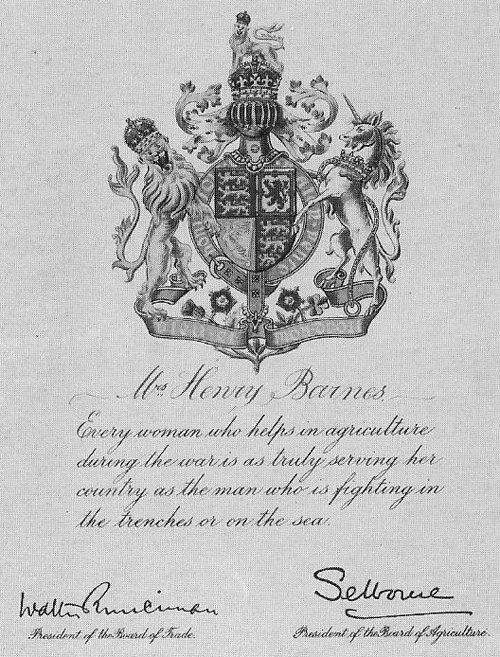 Mrs Henry Barnes
Every woman who helps in agriculture
during the war is as truly serving her
country as the man who is fighting in
the trenches or on the sea.
Walter Runciman
Selborne
President of the Board of Trade.
President of the Board of Agriculture.